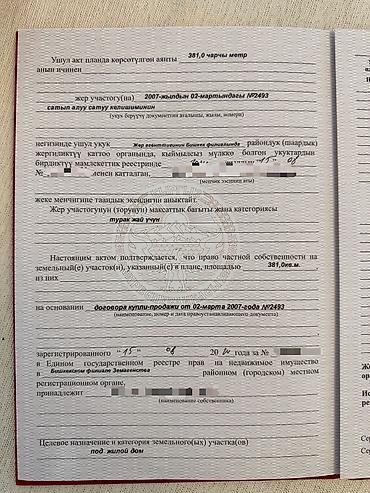 Ушул акт планда көрсөтүлгөн аянты 381,0 чарчы метр
анын ичинен
жер участогу(на) 2007-жылдын 02-мартындагы №2493
сатып алуу сатуу келишиминин
(укук берүүчү документтин аталышы, жазы, номери)
негизинде ушул укук Жер агенттигинин Бишкек филиалында райондук (шаардык)
жергиликтүү каттоо органында, кыймылсыз мүлккө болгон укуктардын
бирдиктүү мамлекеттик реестринде "15" 08
№ менен катталган,
(менчик ээсинин аты)
жеке менчигине таандык экендигин аныктайт.
Жер участогунун (торунун) максаттык багыты жана категориясы
турак жай үчүн
Настоящим актом подтверждается, что право частной собственности на
земельный(е) участок(и), указанный(е) в плане, площадью 381,0кв.м.
из них
на основании договора купли-продажи от 02-марта 2007-года №2493
(наименование, номер и дата правоустанавливающего документа)
зарегистрированного "15" 08 20 года за №
в Едином государственном реестре прав на недвижимое имущество
в Бишкекском филиале Земагенства районном (городском) местном
регистрационном органе,
принадлежит
(наименование собственника)
Целевое назначение и категория земельного(ых) участка(ов)
под жилой дом